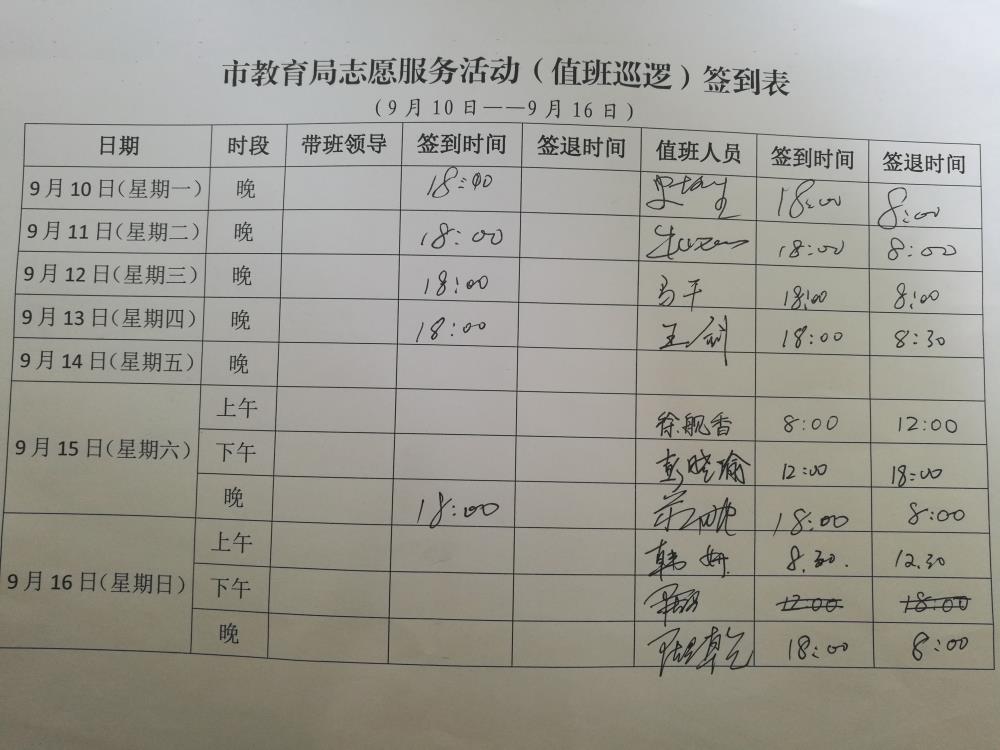 市教育局志愿服务活动（值班巡逻）签到表
（9月10日——9月16日）
日期 时段 带班领导 签到时间 签退时间 值班人员 签到时间 签退时间
9月10日（星期一） 晚 18:00 18:00 8:00
9月11日（星期二） 晚 18:00 18:00 8:00
9月12日（星期三） 晚 18:00 马平 18:00 8:00
9月13日（星期四） 晚 18:00 18:00 8:30
9月14日（星期五） 晚
9月15日（星期六） 上午 8:00 12:00
下午 彭晓瑜 12:00 18:00
晚 18:00 18:00 8:00
9月16日（星期日） 上午 韩妍 8.30. 12.30
下午 12:00 18:00
晚 18:00 8:00